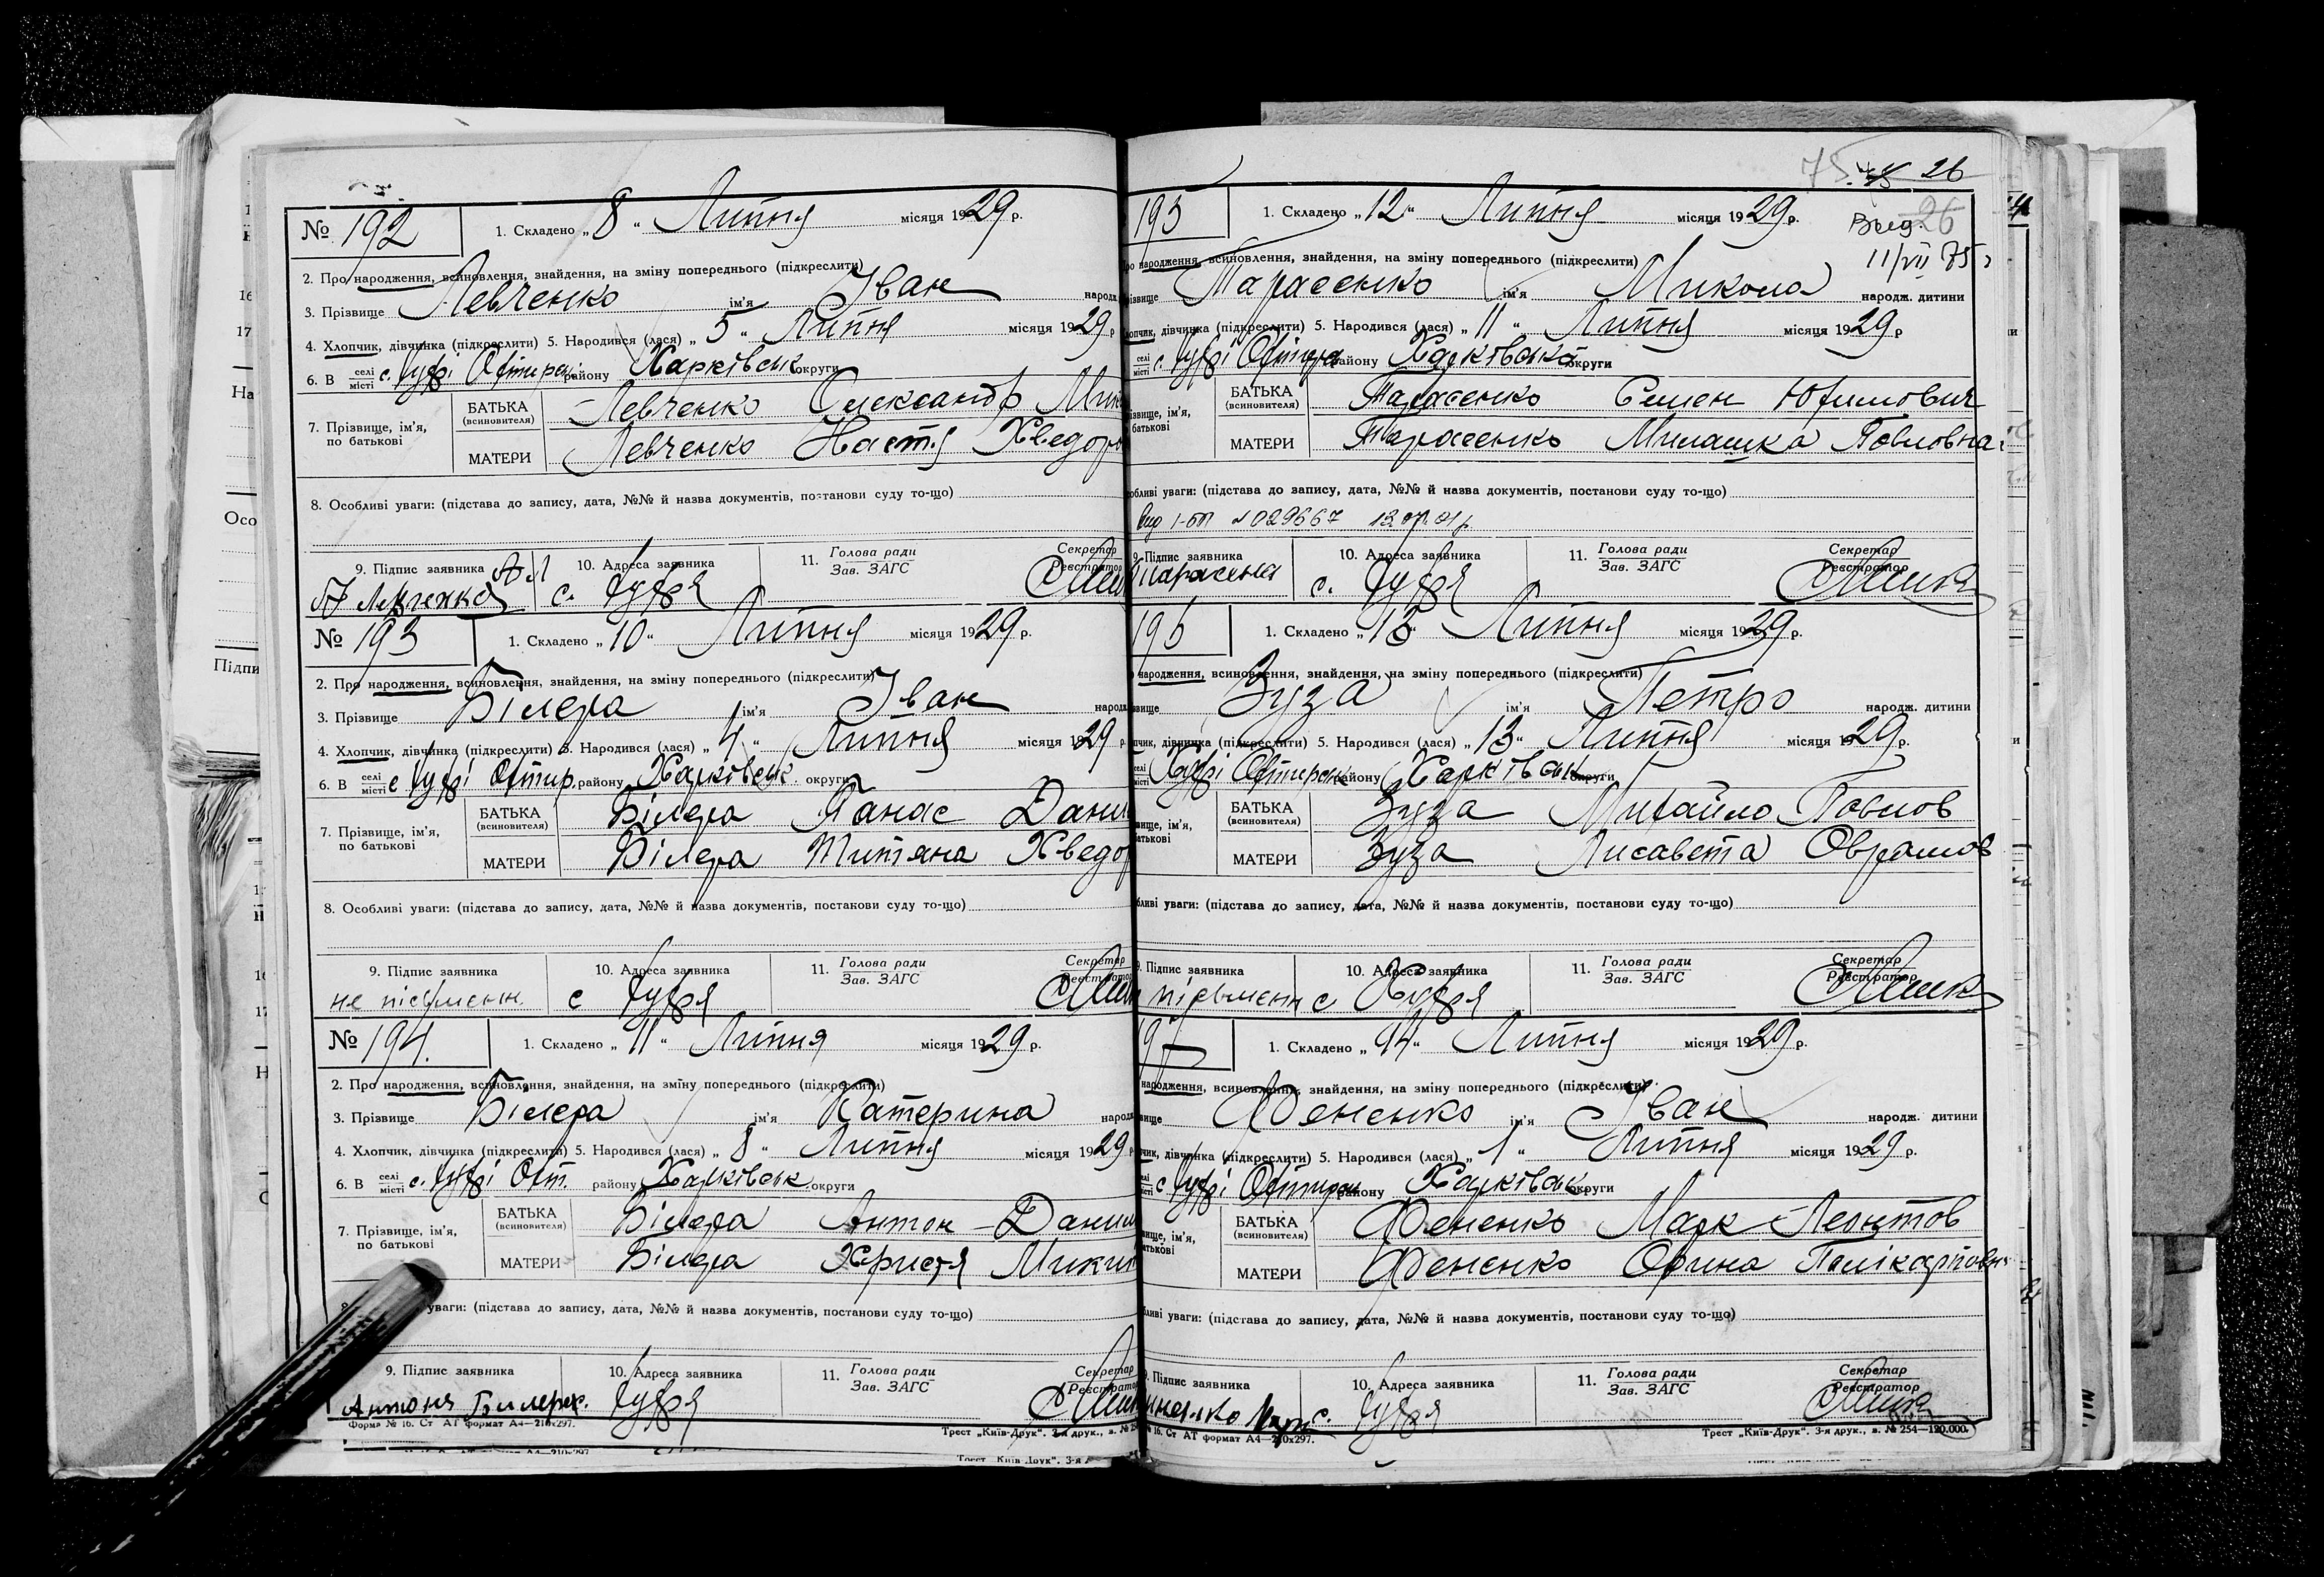 № 192 1. Складено „ 8 “ Липня місяця 1929 р.
2. Про народження, всиновлення, знайдення, на зміну попереднього (підкреслити)
3. Прізвище Левченко ім'я Іван народ
4. Хлопчик, дівчинка (підкреслити) 5. Народився (лася) „ 5 “ Липня місяця 1929 р
6. В селі місті с. району Харківськ округи
7. Прізвище, ім'я, по батькові
БАТЬКА (всиновителя) Левченко Олександр Мик
МАТЕРИ Левченко Настя Хведоро
8. Особливі уваги: (підстава до запису, дата, №№ й назва документів, постанови суду то-що)
9. Підпис заявника 10. Адреса заявника 11. Голова ради Зав. ЗАГС Секретар Реєстратор
с.
№ 193 1. Складено „ 10 “ Липня місяця 1929 р.
2. Про народження, всиновлення, знайдення, на зміну попереднього (підкреслити)
3. Прізвище Білера ім'я Іван народ
4. Хлопчик, дівчинка (підкреслити) 5. Народився (лася) „ 4 “ Липня місяця 1929 р
6. В селі місті с Охтир. району Харківськ. округи
7. Прізвище, ім'я, по батькові
БАТЬКА (всиновителя) Білера Панас Дани
МАТЕРИ Білера Титяна Хведор
8. Особливі уваги: (підстава до запису, дата, №№ й назва документів, постанови суду то-що)
9. Підпис заявника 10. Адреса заявника 11. Голова ради Зав. ЗАГС Секретар Реєстратор
не письменн. с
№ 194. 1. Складено „ 11 “ Липня місяця 1929 р.
2. Про народження, всиновлення, знайдення, на зміну попереднього (підкреслити)
3. Прізвище Білера ім'я Катерина народ
4. Хлопчик, дівчинка (підкреслити) 5. Народився (лася) „ 8 “ Липня місяця 1929 р
6. В селі місті с. Охт. району Харківськ. округи
7. Прізвище, ім'я, по батькові
БАТЬКА (всиновителя) Білера Антон Данил
МАТЕРИ Білера Христя Микит
уваги: (підстава до запису, дата, №№ й назва документів, постанови суду то-що)
9. Підпис заявника 10. Адреса заявника 11. Голова ради Зав. ЗАГС Секретар Реєстратор
Форма № 16. Ст АТ формат А4—210х297.
Трест „Київ-Друк“. 3-я друк., в. № 25
75 26
195 1. Складено „ 12 “ Липня місяця 1929 р.
26
11/VII 75
ро народження, всиновлення, знайдення, на зміну попереднього (підкреслити)
різвище Тарасенко ім'я Микола народж. дитини
лопчик, дівчинка (підкреслити) 5. Народився (лася) „ 11 “ Липня місяця 1929 р
селі місті с. району Харківська округи
ізвище, ім'я, батькові
БАТЬКА (всиновителя) Тарасенко Семен Юхимович
МАТЕРИ Тарасенко Милашка Повловна
обливі уваги: (підстава до запису, дата, №№ й назва документів, постанови суду то-що)
029667
9. Підпис заявника 10. Адреса заявника 11. Голова ради Зав. ЗАГС Секретар Реєстратор
с.
196 1. Складено „ 13 “ Липня місяця 1929 р.
народження, всиновлення, знайдення, на зміну попереднього (підкреслити)
звище Зуза ім'я Петро народж. дитини
пчик, дівчинка (підкреслити) 5. Народився (лася) „ 13 “ Липня місяця 1929 р.
селі місті району Харківськ округи
вище, ім'я, атькові
БАТЬКА (всиновителя) Зуза Михайло Повлов
МАТЕРИ Зуза Лисавета Оврамов
бливі уваги: (підстава до запису, дата, №№ й назва документів, постанови суду то-що)
9. Підпис заявника 10. Адреса заявника 11. Голова ради Зав. ЗАГС Секретар Реєстратор
письменн с
97 1. Складено „ 14 “ Липня місяця 1929 р.
народження, всиновлення, знайдення, на зміну попереднього (підкреслити)
вище Фененко ім'я Іван народж. дитини
чик, дівчинка (підкреслити) 5. Народився (лася) „ 1 “ Липня місяця 1929 р.
селі місті с району Харківськ. округи
вище, ім'я, атькові
БАТЬКА (всиновителя) Фененко Марк Леонтов
МАТЕРИ Фененко Орина Полікарповн
ливі уваги: (підстава до запису, дата, №№ й назва документів, постанови суду то-що)
9. Підпис заявника 10. Адреса заявника 11. Голова ради Зав. ЗАГС Секретар Реєстратор
с.
№ 16. Ст АТ формат А4—210х297.
Трест „Київ-Друк“. 3-я друк., в. № 254—120.000.